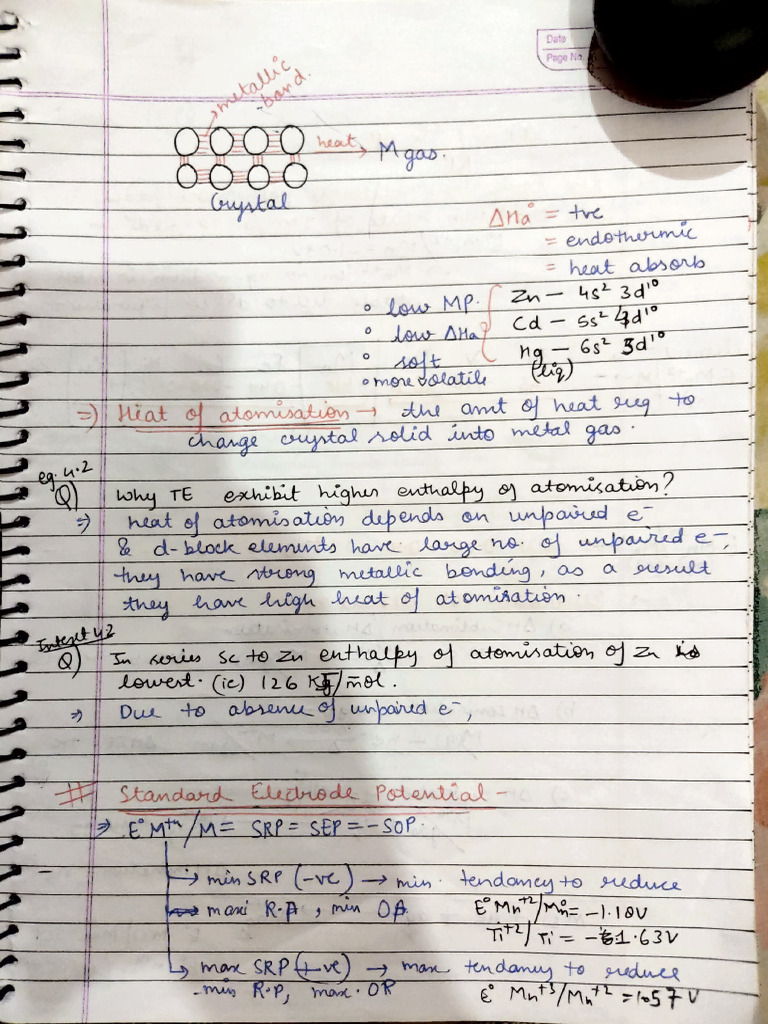 Date
Page No.
metallic
bond.
heat → M gas.
Crystal
ΔHa° = +ve
= endothermic
= heat absorb
• low MP. Zn – 4s² 3d¹⁰
• low ΔHa Cd – 5s² 4d¹⁰
• soft Hg – 6s² 5d¹⁰
• more volatile (liq)
⇒) Heat of atomisation → the amt of heat req to
change crystal solid into metal gas.
eg. 4.2
Q) Why TE exhibit higher enthalpy of atomisation?
⇒ heat of atomisation depends on unpaired e⁻
& d-block elements have large no. of unpaired e⁻,
they have strong metallic bonding, as a result
they have high heat of atomisation.
Intext 4.2
Q) In series Sc to Zn enthalpy of atomisation of Zn is
lowest. (ie) 126 KJ/mol.
⇒ Due to absence of unpaired e⁻,
# Standard Electrode Potential –
⇒ E° M⁺ⁿ/M = SRP = SEP = –SOP.
→ min SRP (–ve) → min. tendancy to reduce
→ maxi R.P , min OP E° Mn⁺²/Mn° = –1.18V
Ti⁺²/Ti = –1.63V
→ max SRP (+ve) → max tendancy to reduce
min R.P, max. OP E° Mn⁺³/Mn⁺² = 1.57 V